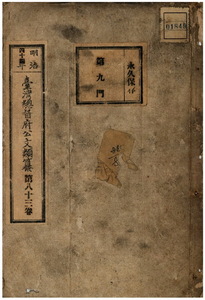 永久保存
第九門
明治
四十四年
臺灣總督府公文類纂 第八十三卷